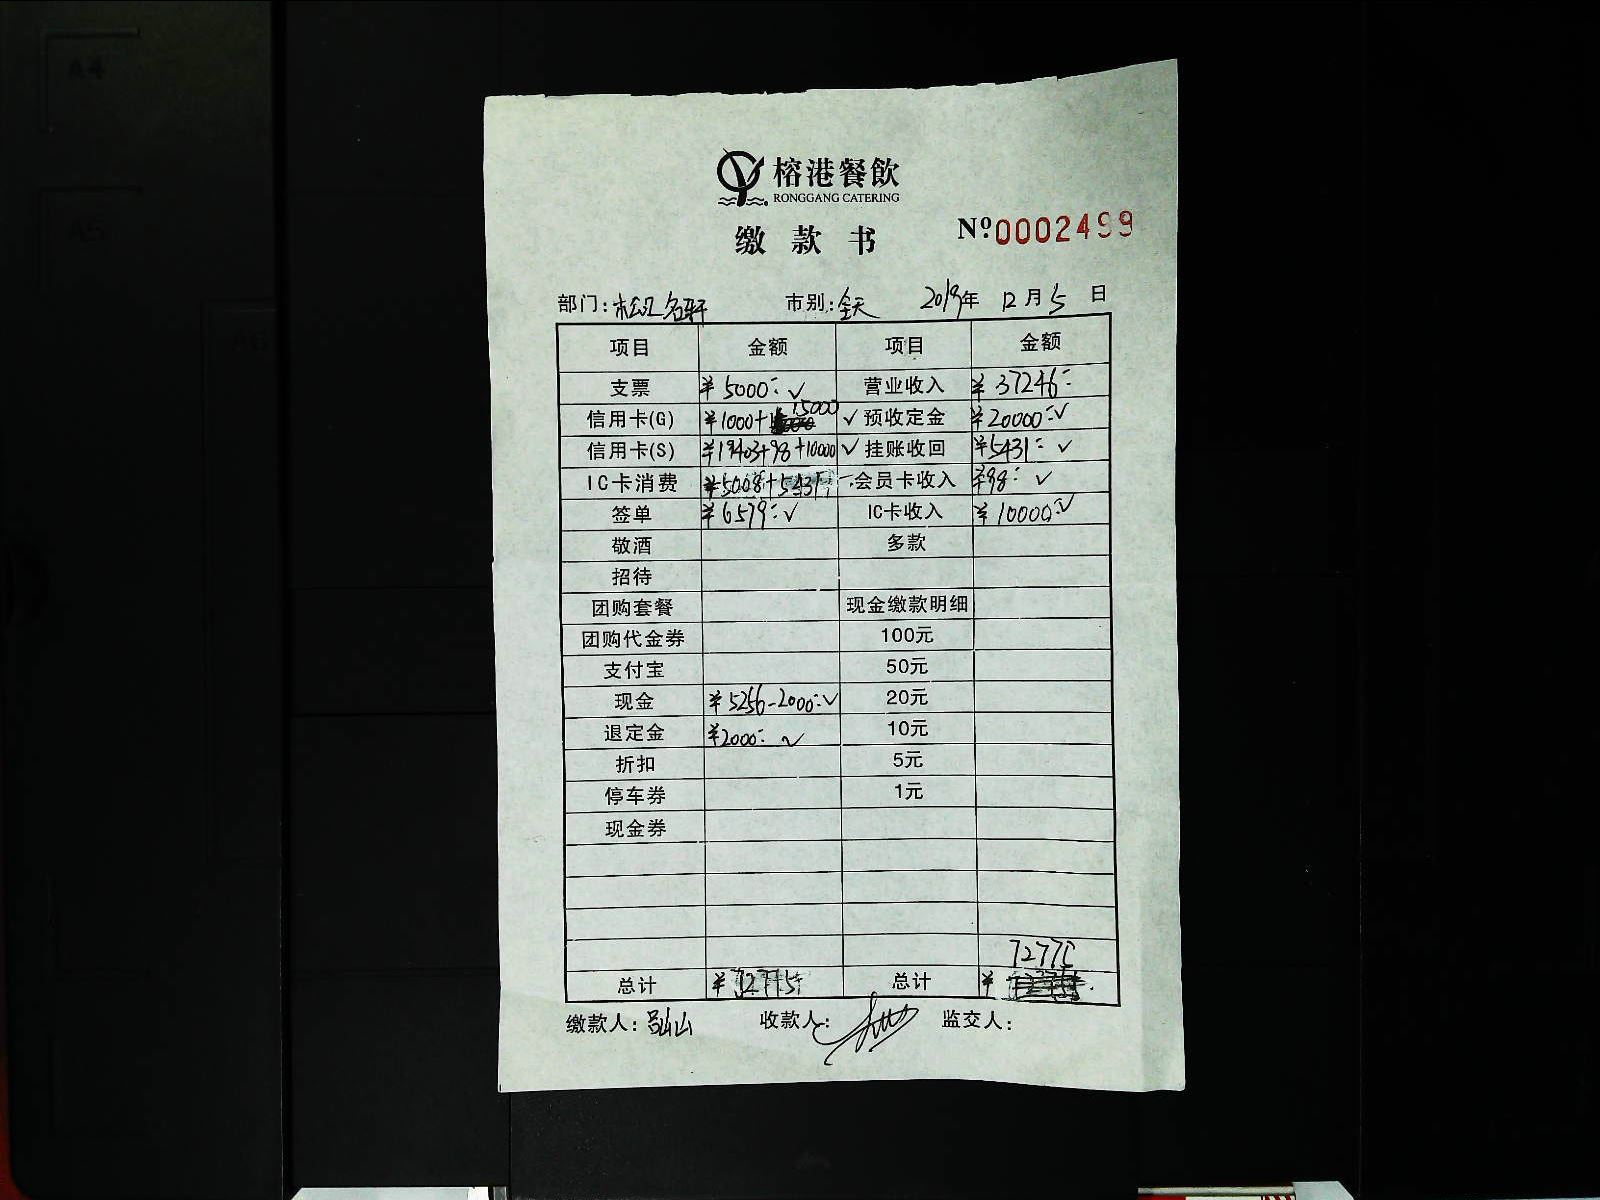 A4
A5
榕港餐飲
RONGGANG CATERING
缴款书
Nº0002499
部门: 松江名轩 市别: 全天 2019年 12月5日
项目 金额 项目 金额
支票 ¥5000 ✓ 营业收入 ¥37246
信用卡(G) ¥1000+15000 ✓ 预收定金 ¥20000 ✓
信用卡(S) +98+10000 ✓ 挂账收回 ¥5431 ✓
IC卡消费 ¥5008+5431 会员卡收入 ¥98 ✓
签单 ¥6579 ✓ IC卡收入 ¥10000 ✓
敬酒 多款
招待
团购套餐 现金缴款明细
团购代金券 100元
支付宝 50元
现金 ¥5256-2000 ✓ 20元
退定金 ¥2000 ✓ 10元
折扣 5元
停车券 1元
现金券
72775
总计 ¥72775 总计 ¥
缴款人: 吕山山 收款人: 监交人: